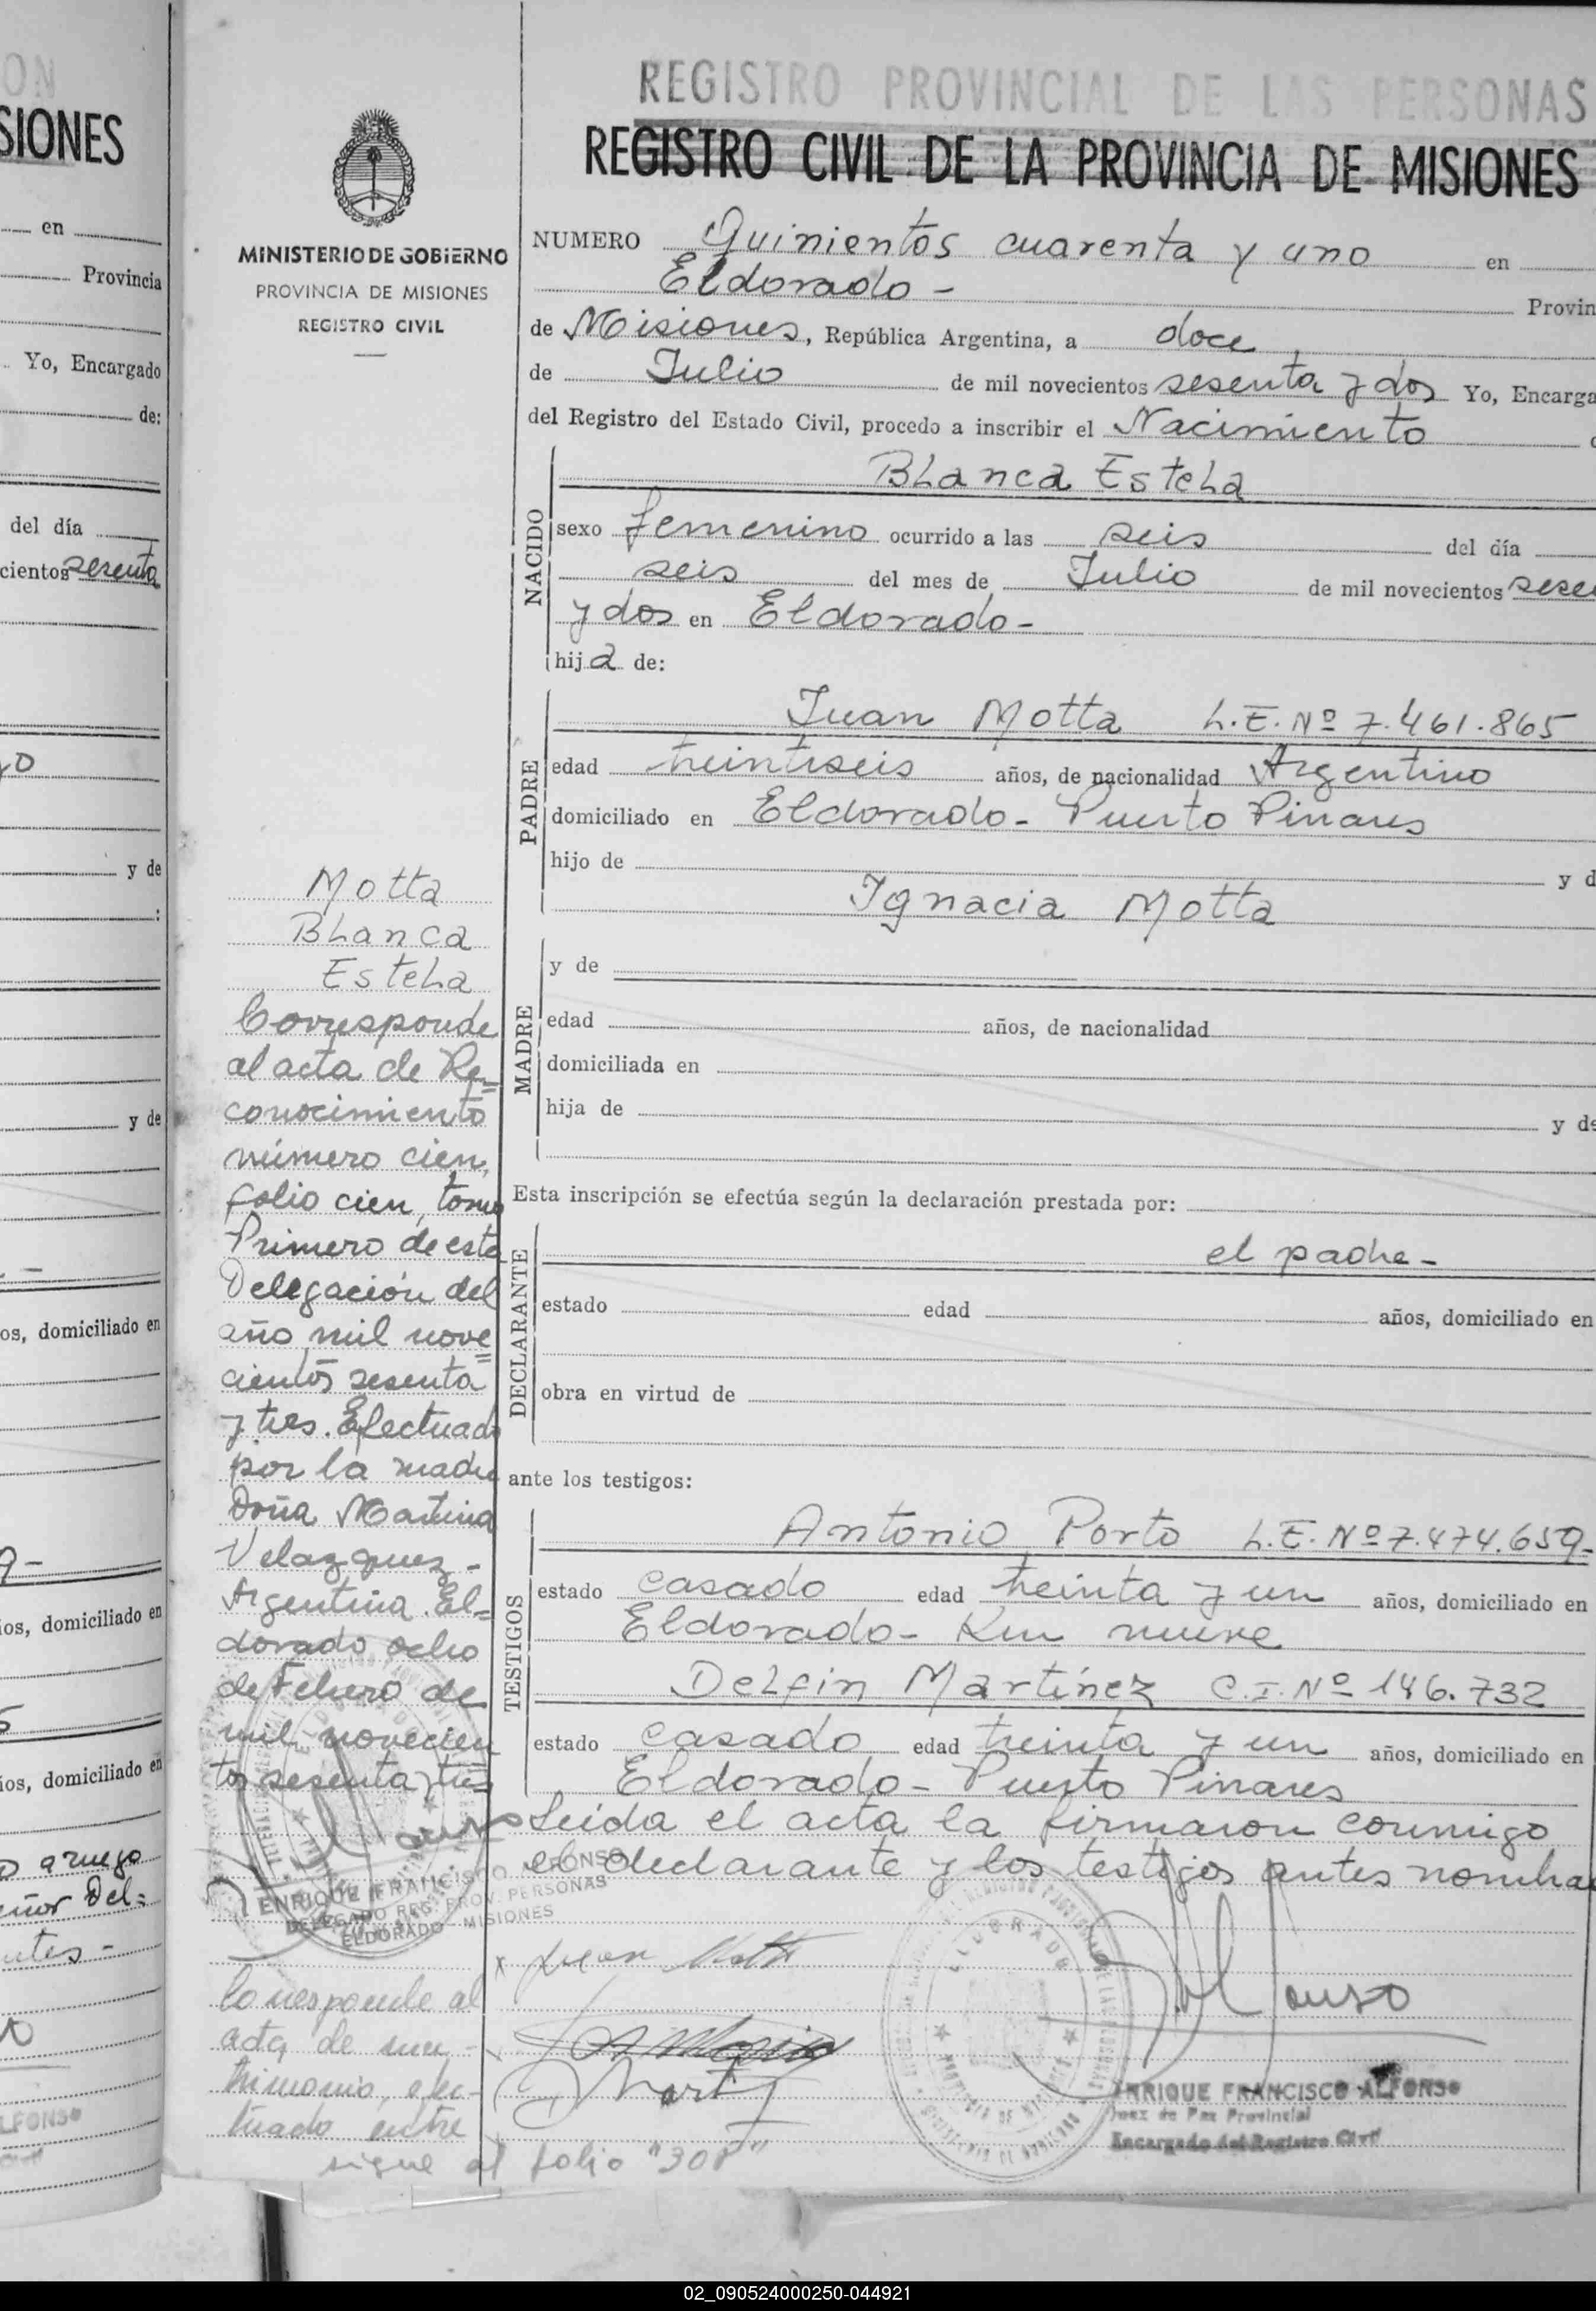 ON
SIONES
en
Provincia
Yo, Encargado
de:
del día
cientos sesenta
y de
:
y de
os, domiciliado en
ios, domiciliado en
ios, domiciliado en
a ruego
eñor Del=
ntes -
LFONSO
MINISTERIO DE GOBIERNO
PROVINCIA DE MISIONES
REGISTRO CIVIL
Motta
Blanca
Estela
Corresponde
al acta de Re=
conocimiento
número cien,
folio cien, tomo
Primero de esta
Delegación del
año mil nove=
cientos sesenta
y tres. Efectuado
por la madre
Doña Martina
Velazquez -
Argentina. El=
dorado ocho
de Febrero de
mil novecien
tos sesenta y tres
ENRIQUE FRANCISCO ALFONSO
DELEGADO REG. PROV. PERSONAS
ELDORADO - MISIONES
Corresponde al
acta de ma-
trimonio, efec-
tuado entre
sigue al folio "308"
REGISTRO PROVINCIAL DE LAS PERSONAS
REGISTRO CIVIL DE LA PROVINCIA DE MISIONES
NUMERO Quinientos cuarenta y uno en
Eldorado - Provin
de Misiones, República Argentina, a doce
de Julio de mil novecientos sesenta y dos Yo, Encarga
del Registro del Estado Civil, procedo a inscribir el Nacimiento
NACIDO
Blanca Estela
sexo femenino ocurrido a las seis del día
seis del mes de Julio de mil novecientos sese
y dos en Eldorado-
hija de:
PADRE
Juan Motta L.E. Nº 7.461.865
edad treintiseis años, de nacionalidad Argentino
domiciliado en Eldorado- Puerto Pinares
hijo de y d
Ignacia Motta
MADRE
y de
edad años, de nacionalidad
domiciliada en
hija de y de
Esta inscripción se efectúa según la declaración prestada por:
DECLARANTE
el padre-
estado edad años, domiciliado en
obra en virtud de
ante los testigos:
TESTIGOS
Antonio Porto L.E. Nº 7.474.659-
estado casado edad treinta y un años, domiciliado en
Eldorado- Km nueve
Delfin Martínez C.I. Nº 146.732
estado casado edad treinta y un años, domiciliado en
Eldorado- Puerto Pinares
Leida el acta la firmaron conmigo
el declarante y los testigos antes nombra
x Juan Motta
ELDORADO
ENRIQUE FRANCISCO ALFONSO
Juez de Paz Provincial
Encargado del Registro Civil
02_090524000250-044921